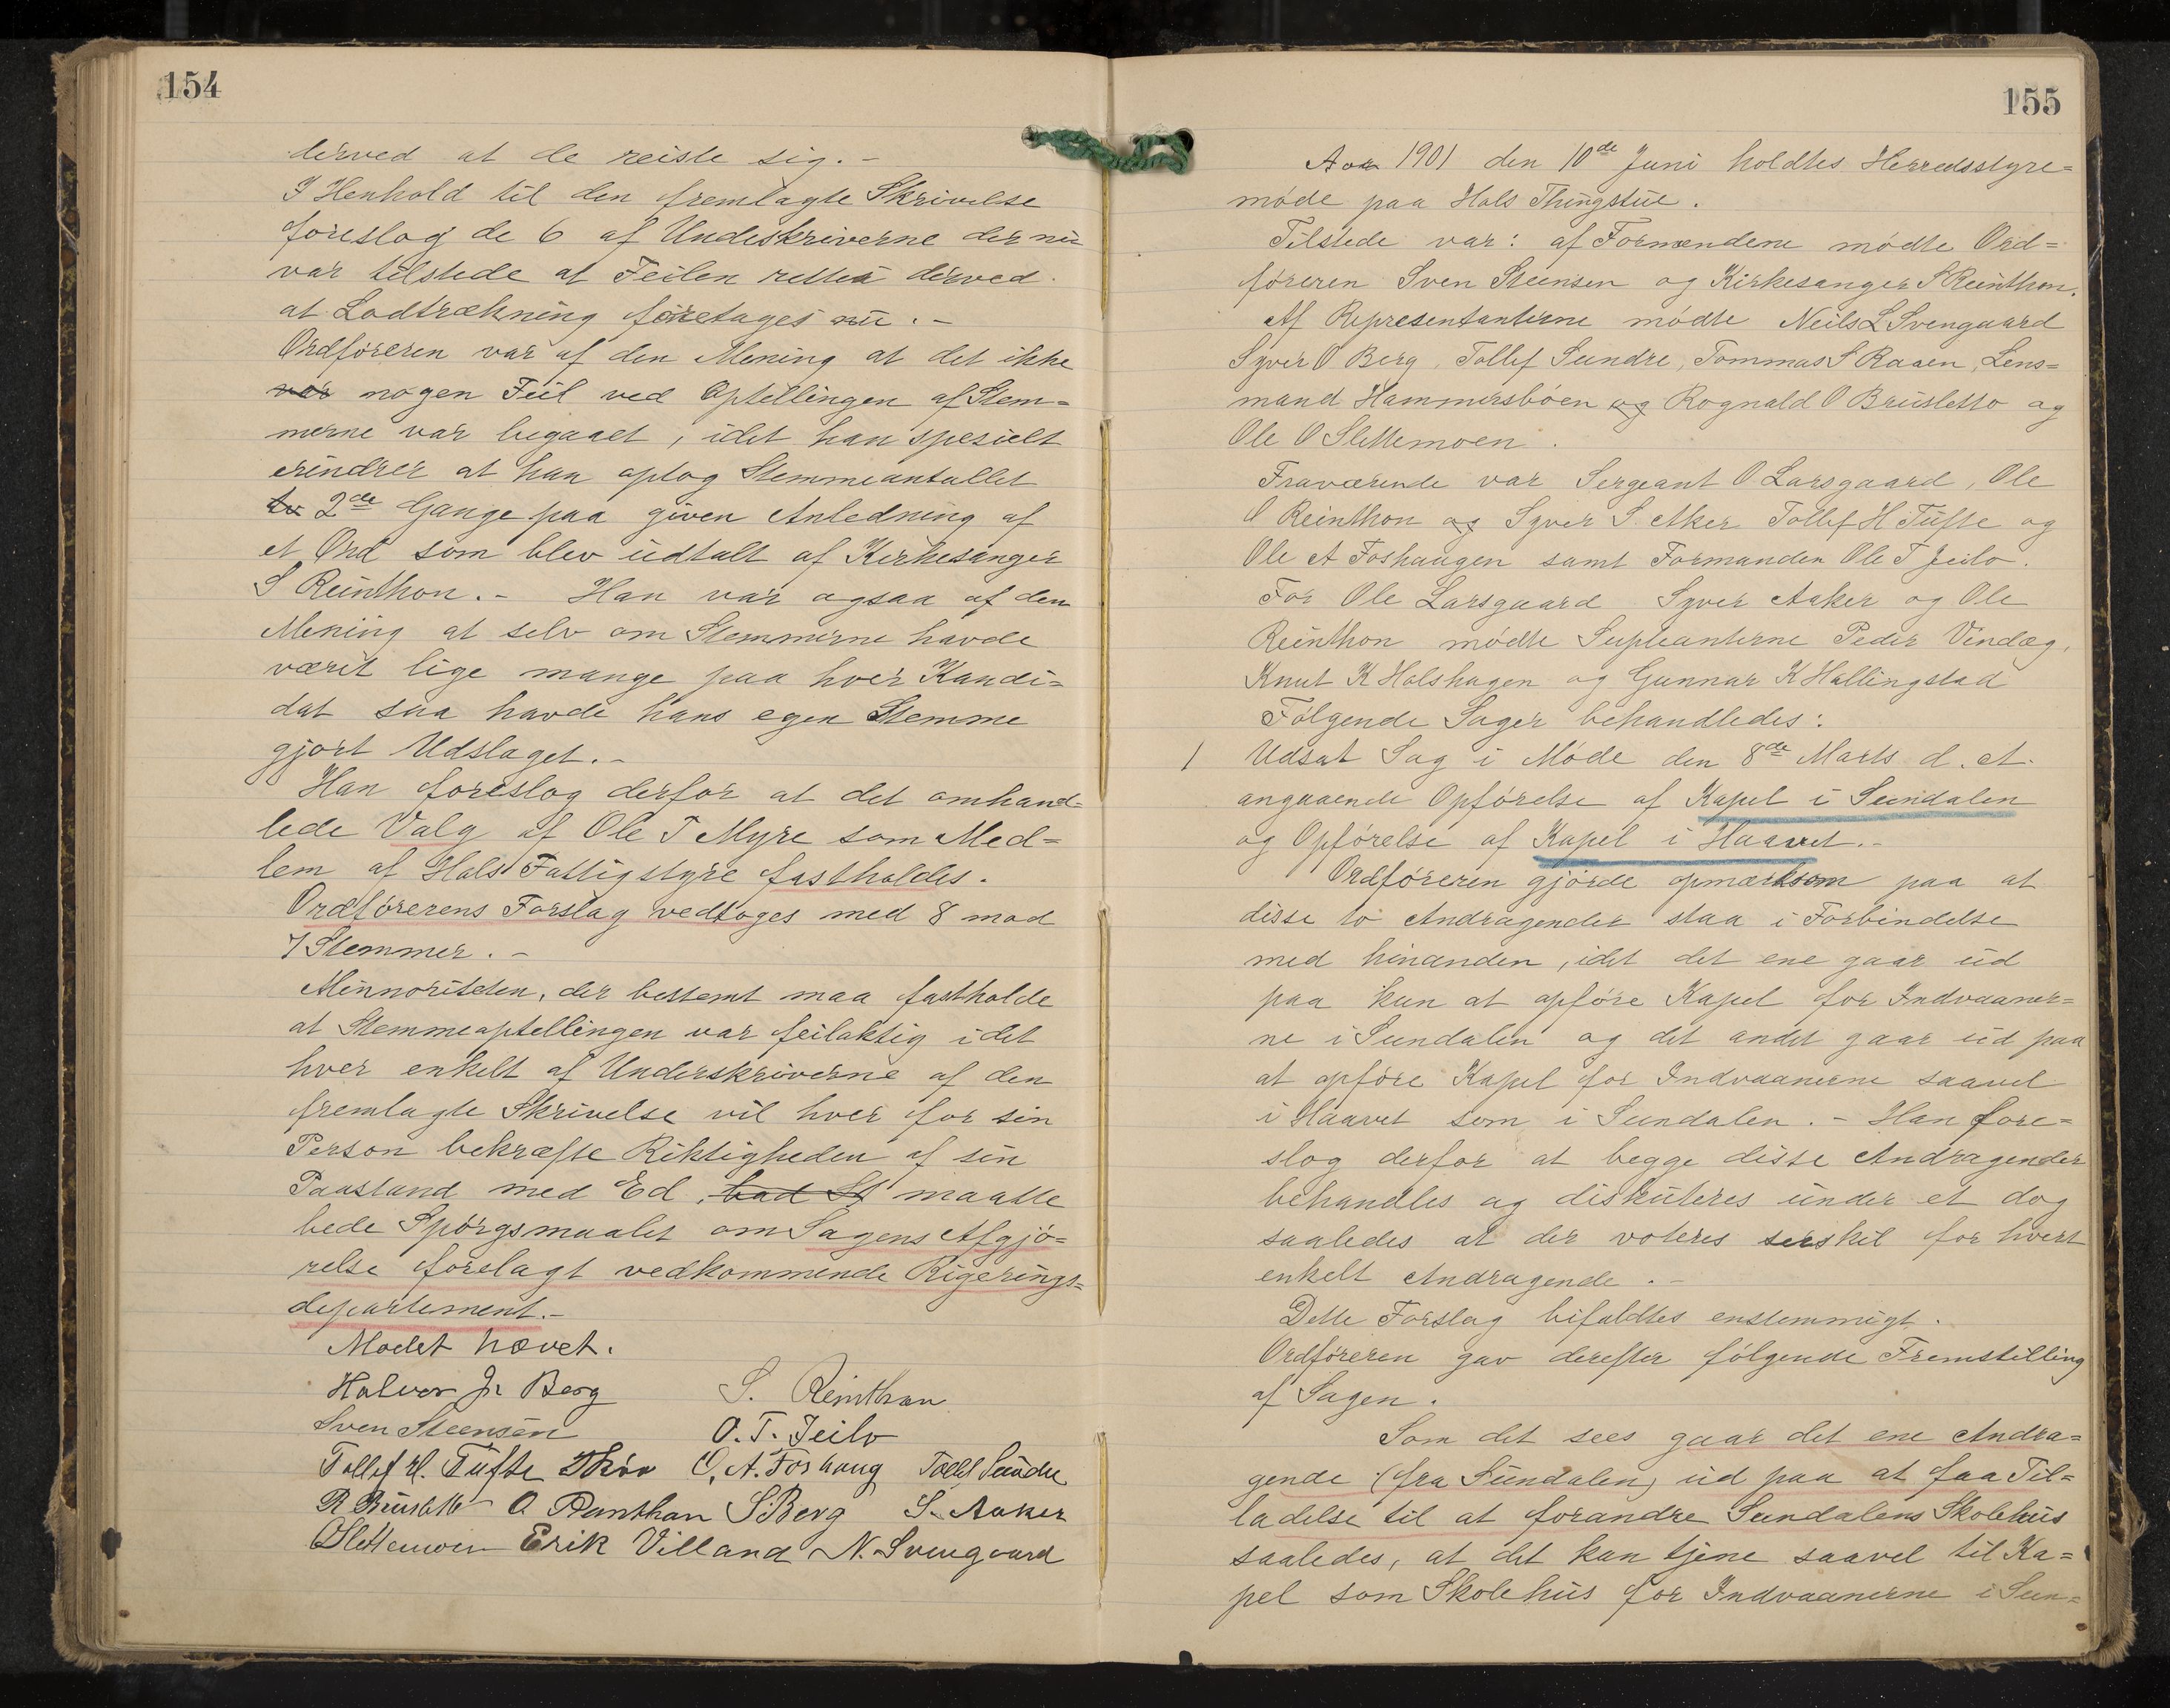 154
derved at de reiste sig. -
I Henhold til den fremlagte Skrivelse
foreslog de 6 af Undeskriverne der nu
var tilstede at Feilen rettes derved
at Lodtrækning foretages nu. -
Ordføreren var af den Mening at det ikke
var nogen Feil ved Optellingen af Stem=
merne var begaaet, idet han spesielt
erindrer at han optog Stemmeantallet
to 2de Gange paa given Anledning af
et Ord som blev udtalt af Kirkesanger
S Reinthon. - Han var ogsaa af den
Mening at selv om Stemmerne havde
værit lige mange paa hver Kandi=
dat saa havde hans egen Stemme
gjort Udslaget. -
Han foreslog derfor at det omhand=
lede Valg af Ole T Myre som Med=
lem af Hols Fattigstyre fastholdes.
Ordførerens Forslag vedtoges med 8 mod
7 Stemmer. -
Minnoriteten, der bestemt maa fastholde
at Stemmeoptellingen var feilaktig idet
hver enkelt af Underskriverne af den
fremlagte Skrivelse vil hver for sin
Person bekræfte Riktigheden af sin
Paastand med Ed, bad St maatte
bede Spørgsmaalet om Sagens Afgjø=
relse forelagt vedkommende Rigerings=
departement. -
Mødet hævet.
Halvor Jr Berg S. Reinthon
Sven Steensen O. T. Jeilo
Tollef H. Tufte TSkro O. A. Foshaug Tollef Sundre
R Brusletto O Renthon S Berg S. Aaker
O Slettemoen Erik Villand N. Svengaard
155
Aar 1901 den 10de Juni holdtes Herredsstyre=
møde paa Hols Thingstue.
Tilstede var: af Formændene mødte Ord=
føreren Sven Steensen og Kirkesanger S Reinthon.
Af Representanterne mødte Neils L Svengaard
Syver O Berg, Tollef Sundre, Tommas S Raaen, Lens=
mand Hammersbøen og Rognald O Brusletto og
Ole O Slettemoen.
Fraværende var Sergeant O Larsgaard, Ole
O Reinthon og Syver S. Aker Tollef H Tufte og
Ole A Foshaugen samt Formanden Ole T Jeilo.
For Ole Larsgaard Syver Aaker og Ole
Reinthon mødte Supleanterne Peder Vindeg,
Knut K Holshagen og Gunnar K Hallingstad
Følgende Sager behandledes:
1 Udsat Sag i Møde den 8de Marts d. A.
angaaende Opførelse af Kapel i Sundalen
og Opførelse af Kapel i Haavet. -
Ordføreren gjorde opmærksom paa at
disse to Andragender staa i Forbindelse
med hinanden, idet det ene gaar ud
paa kun at opføre Kapel for Indvaaner=
ne i Sundalen og det andet gaar ud paa
at opføre Kapel for Indvaanerne saavel
i Haavet som i Sundalen. - Han fore=
slog derfor at begge disse Andragender
behandles og diskuteres under et dog
saaledes at der voteres serskil for hvert
enkelt Andragende. -
Dette Forslag bifaldtes enstemmigt.
Ordføreren gav derefter følgende Fremstilling
af Sagen.
Som det sees gaar det ene Andra=
gende (fra Sundalen) ud paa at faa Til=
ladelse til at forandre Sundalens Skolehus
saaledes, at det kan tjene saavel til Ka=
pel som Skolehus for Indvaanerne i Sun=